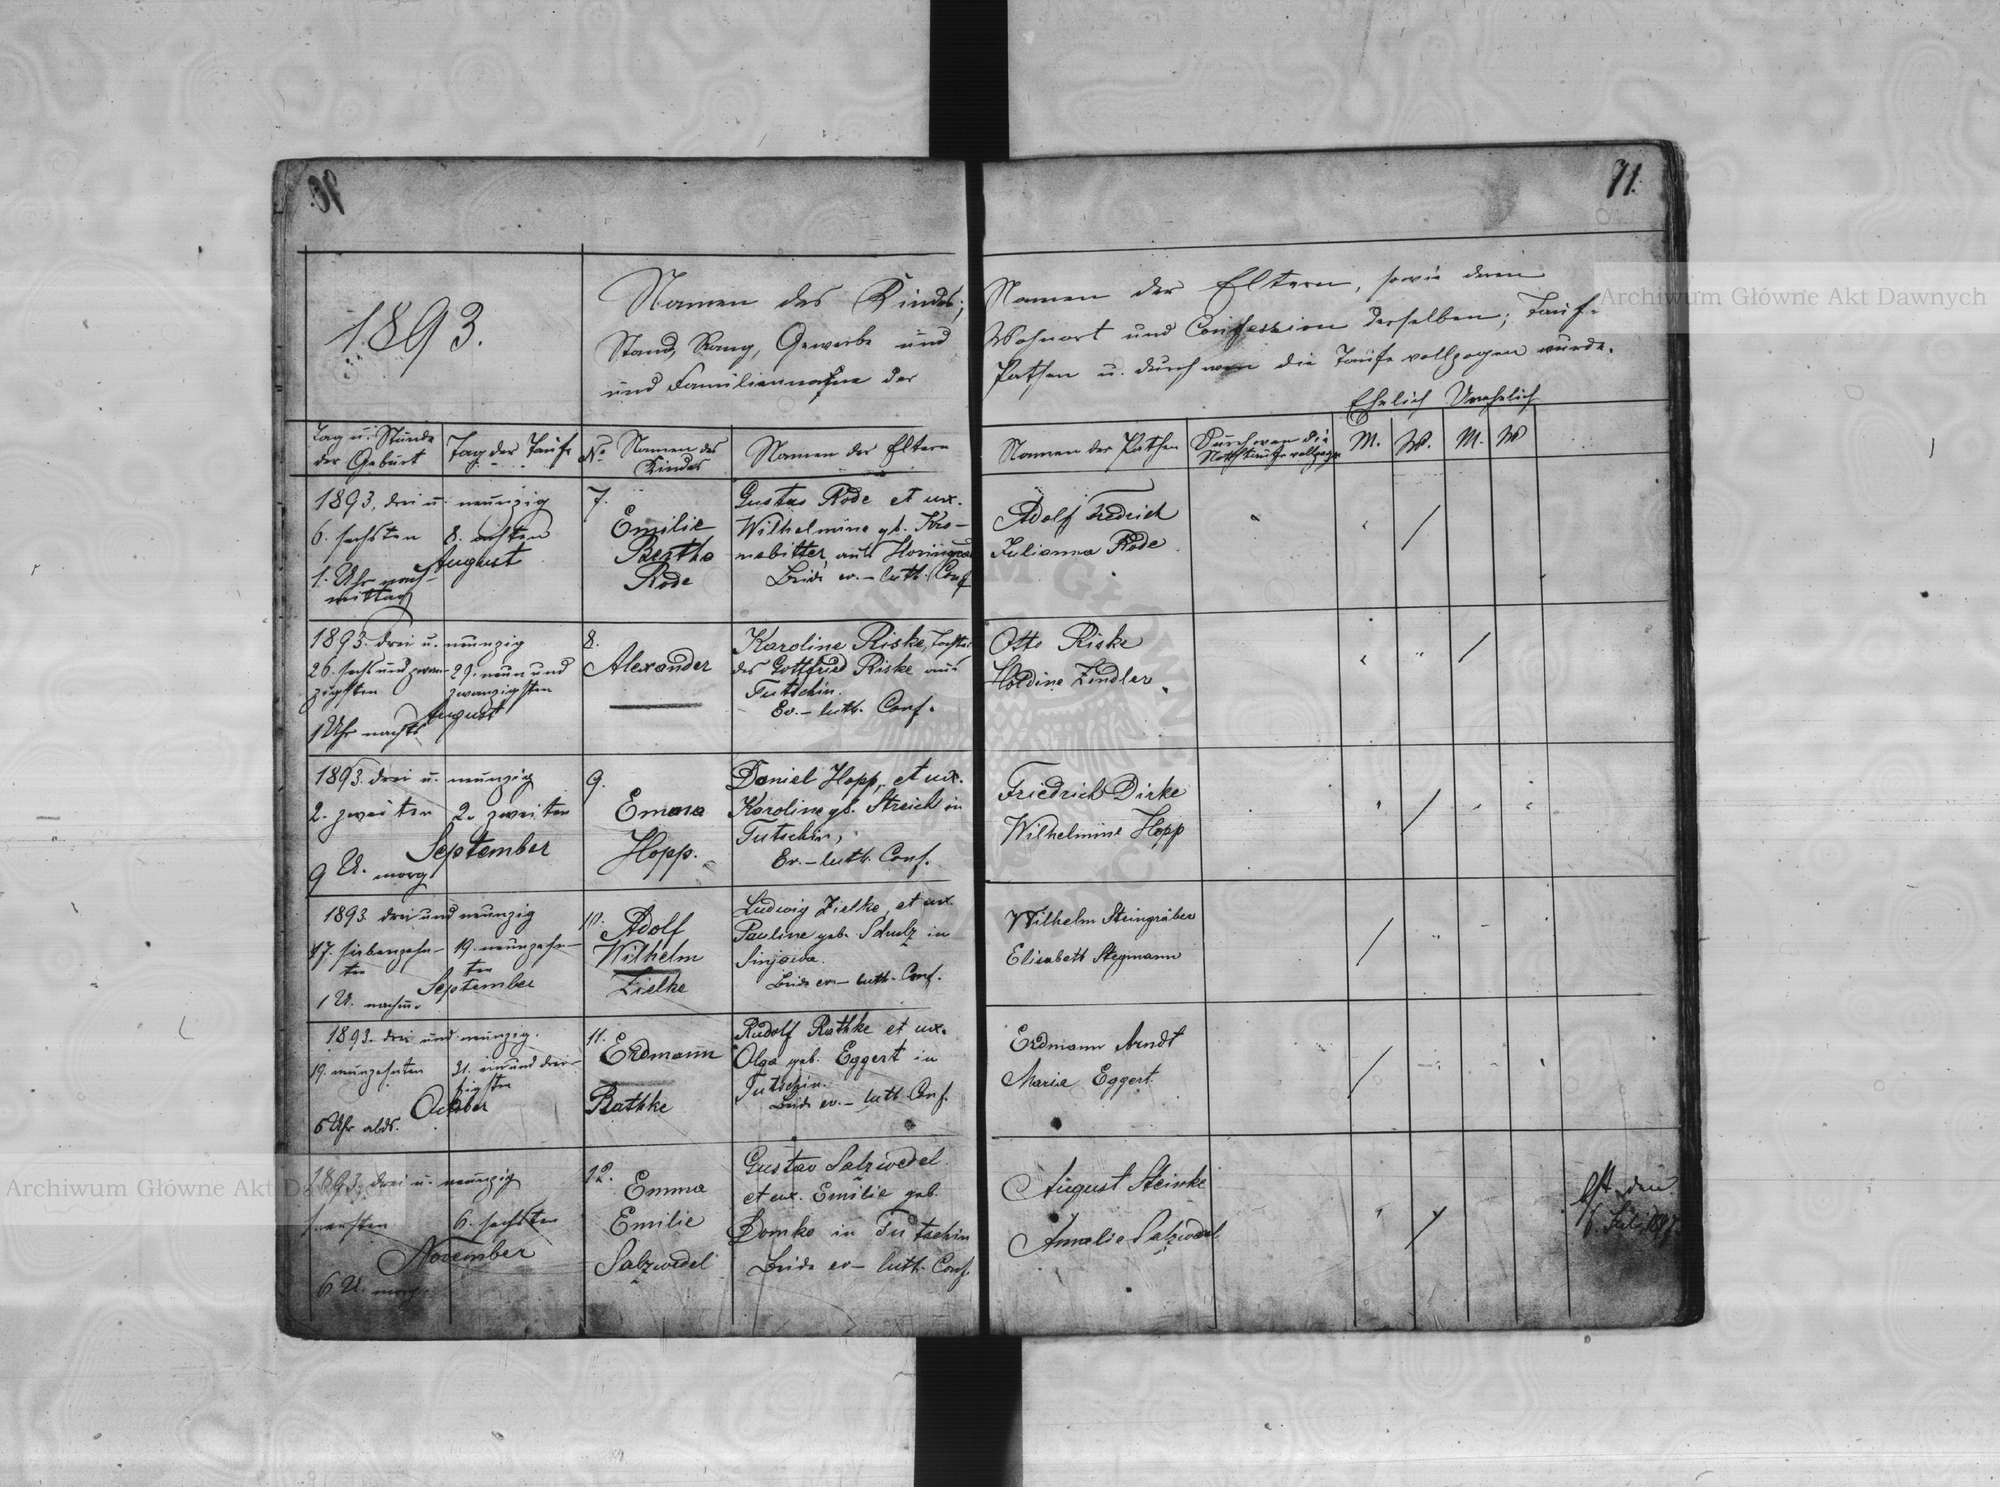 70.
71.
1893.
Namen des Kindes;
Stand, Rang, Gewerbe und
und Familienname der
Namen der Eltern, sowie deren
Wohnort und Confession derselben; Tauf-
Pathen u. durch wen die Taufe vollzogen wurde.
Ehelich Unehelich
Tag u. Stunde der Geburt
Tag der Taufe
No
Namen des Kindes
Namen der Eltern
Namen der Pathen
Durch wen die Nothtaufe vollzogen
M.
W.
M.
W
1893, drei u. neunzig
6. sechsten
8. achten
August
1. Uhr nach-
mittag
7.
Emilie
Bertha
Rode
Gustav Rode et ux.
Wilhelmine gb. Kro-
nebitter aus
Beide ev.-luth. Conf
Adolf Fredrich
Julianna Rode
1893. drei u. neunzig
26. sechs und zwan-
zigsten
29. neun und
zwanzigsten
August
1 Uhr nachts
8.
Alexander
Karoline Riske, Tochter
des Gottfried Riske aus
Tutschin.
Ev.-luth. Conf.
Otto Riske
Holdine Zindler
1893. drei u. neunzig
2. zweiten
2. zweiten
September
9 U. morg
9.
Emma
Hopp.
Daniel Hopp, et ux.
Karoline gb. Streich in
Tutschin,
Ev.-luth. Conf.
Friedrich Dirke
Wilhelmine Hopp
1893 drei und neunzig
17. siebenzehn-
ten
19. neunzehn-
ten
September
1 U. nachm.
10.
Adolf
Wilhelm
Zielke
Ludwig Zielke, et ux.
Pauline geb. Schulz in
Sinjawa.
Beide ev-luth. Conf.
Wilhelm Steingräber
Elisabeth Stegmann
1893. drei und neunzig.
19. neunzehnten
31. ein und drei-
zigsten
October
6 Uhr abds.
11.
Erdmann
Rathke
Rudolf Rathke et ux.
Olga geb. Eggert in
Tutschin.
Beide ev.-luth Conf.
Erdmann Arndt
Maria Eggert.
1893. drei u. neunzig
6. sechsten
November
6 U. morg.
12.
Emma
Emilie
Salzwedel
Gustav Salzwedel
et ux. Emilie geb.
Domke in Tutschin
Beide ev-luth. Conf.
August Steinke
Amalie Salzwedel
Archiwum Główne Akt Dawnych
Archiwum Główne Akt Dawnych